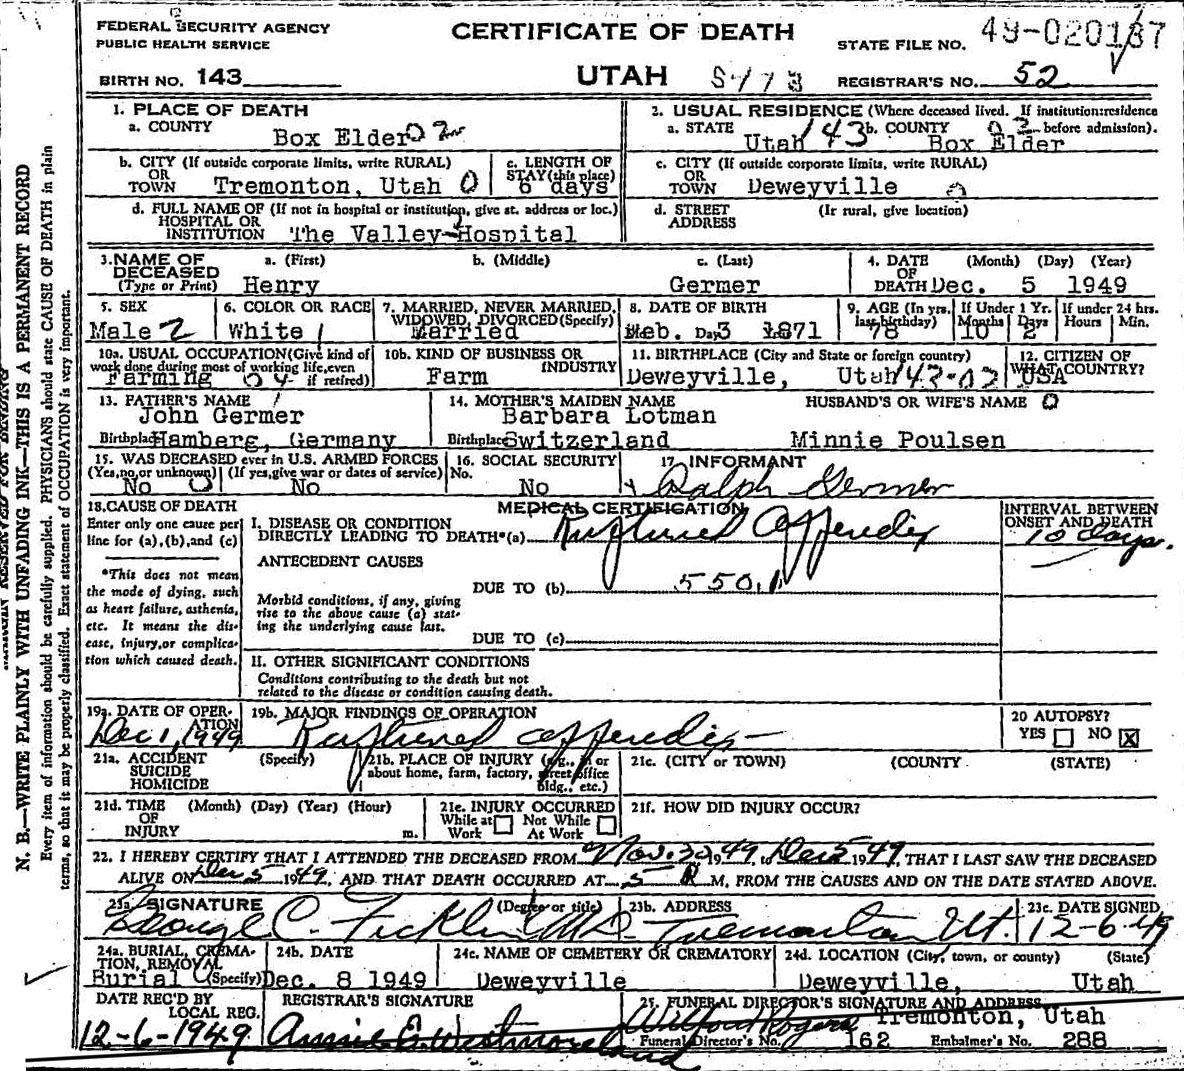 FEDERAL SECURITY AGENCY
PUBLIC HEALTH SERVICE
CERTIFICATE OF DEATH
STATE FILE NO. 49-020137
BIRTH NO. 143
UTAH
REGISTRAR'S NO. 52
1. PLACE OF DEATH
a. COUNTY Box Elder 02
2. USUAL RESIDENCE (Where deceased lived. If institution:residence before admission).
a. STATE Utah 143 b. COUNTY 02 Box Elder
b. CITY (If outside corporate limits, write RURAL)
OR TOWN Tremonton, Utah 0
c. LENGTH OF STAY (this place) 6 days
c. CITY (If outside corporate limits, write RURAL)
OR TOWN Deweyville 0
d. FULL NAME OF (If not in hospital or institution, give st. address or loc.)
HOSPITAL OR INSTITUTION The Valley Hospital
d. STREET ADDRESS (Ir rural, give location)
3. NAME OF DECEASED (Type or Print)
a. (First) Henry
b. (Middle)
c. (Last) Germer
4. DATE OF DEATH (Month) (Day) (Year) Dec. 5 1949
5. SEX Male 2
6. COLOR OR RACE White 1
7. MARRIED, NEVER MARRIED, WIDOWED, DIVORCED (Specify) Married
8. DATE OF BIRTH Feb. Day 3 1871
9. AGE (In yrs. last birthday) 78
If Under 1 Yr. Months 10 Days 2
If under 24 hrs. Hours Min.
10a. USUAL OCCUPATION (Give kind of work done during most of working life, even if retired) Farming 04
10b. KIND OF BUSINESS OR INDUSTRY Farm
11. BIRTHPLACE (City and State or foreign country) Deweyville, Utah 143-02
12. CITIZEN OF WHAT COUNTRY? USA
13. FATHER'S NAME John Germer
Birthplace Hamberg, Germany
14. MOTHER'S MAIDEN NAME Barbara Lotman
Birthplace Switzerland
HUSBAND'S OR WIFE'S NAME 0
Minnie Poulsen
15. WAS DECEASED ever in U.S. ARMED FORCES
(Yes, no, or unknown) (If yes, give war or dates of service)
No 0 No
16. SOCIAL SECURITY No. No
17. INFORMANT Ralph Germer
18. CAUSE OF DEATH
Enter only one cause per line for (a), (b), and (c)
*This does not mean the mode of dying, such as heart failure, asthenia, etc. It means the disease, injury, or complication which caused death.
MEDICAL CERTIFICATION
I. DISEASE OR CONDITION DIRECTLY LEADING TO DEATH*(a) Ruptured Appendix
INTERVAL BETWEEN ONSET AND DEATH 10 days.
ANTECEDENT CAUSES
DUE TO (b) 550.1
Morbid conditions, if any, giving rise to the above cause (a) stating the underlying cause last.
DUE TO (c)
II. OTHER SIGNIFICANT CONDITIONS
Conditions contributing to the death but not related to the disease or condition causing death.
19a. DATE OF OPERATION Dec 1, 1949
19b. MAJOR FINDINGS OF OPERATION Ruptured appendix
20 AUTOPSY? YES NO X
21a. ACCIDENT SUICIDE HOMICIDE (Specify)
21b. PLACE OF INJURY (e.g., in or about home, farm, factory, street office bldg., etc.)
21c. (CITY or TOWN) (COUNTY) (STATE)
21d. TIME OF INJURY (Month) (Day) (Year) (Hour) m.
21e. INJURY OCCURRED While at Work Not While At Work
21f. HOW DID INJURY OCCUR?
22. I HEREBY CERTIFY THAT I ATTENDED THE DECEASED FROM Nov. 30 1949, to Dec 5 1949, THAT I LAST SAW THE DECEASED
ALIVE ON Dec 5 1949, AND THAT DEATH OCCURRED AT 5 M, FROM THE CAUSES AND ON THE DATE STATED ABOVE.
23a. SIGNATURE (Degree or title) George C. Ficklin M.D.
23b. ADDRESS Tremonton, Ut.
23c. DATE SIGNED 12-6-49
24a. BURIAL, CREMATION, REMOVAL (Specify) Burial
24b. DATE Dec. 8 1949
24c. NAME OF CEMETERY OR CREMATORY Deweyville
24d. LOCATION (City, town, or county) (State) Deweyville, Utah
DATE REC'D BY LOCAL REG. 12-6-1949
REGISTRAR'S SIGNATURE Annie E. Westmoreland
25. FUNERAL DIRECTOR'S SIGNATURE AND ADDRESS
Wilford Rogers Tremonton, Utah
Funeral Director's No. 162 Embalmer's No. 288
N. B.—WRITE PLAINLY WITH UNFADING INK—THIS IS A PERMANENT RECORD
Every item of information should be carefully supplied. PHYSICIANS should state CAUSE OF DEATH in plain
terms, so that it may be properly classified. Exact statement of OCCUPATION is very important.